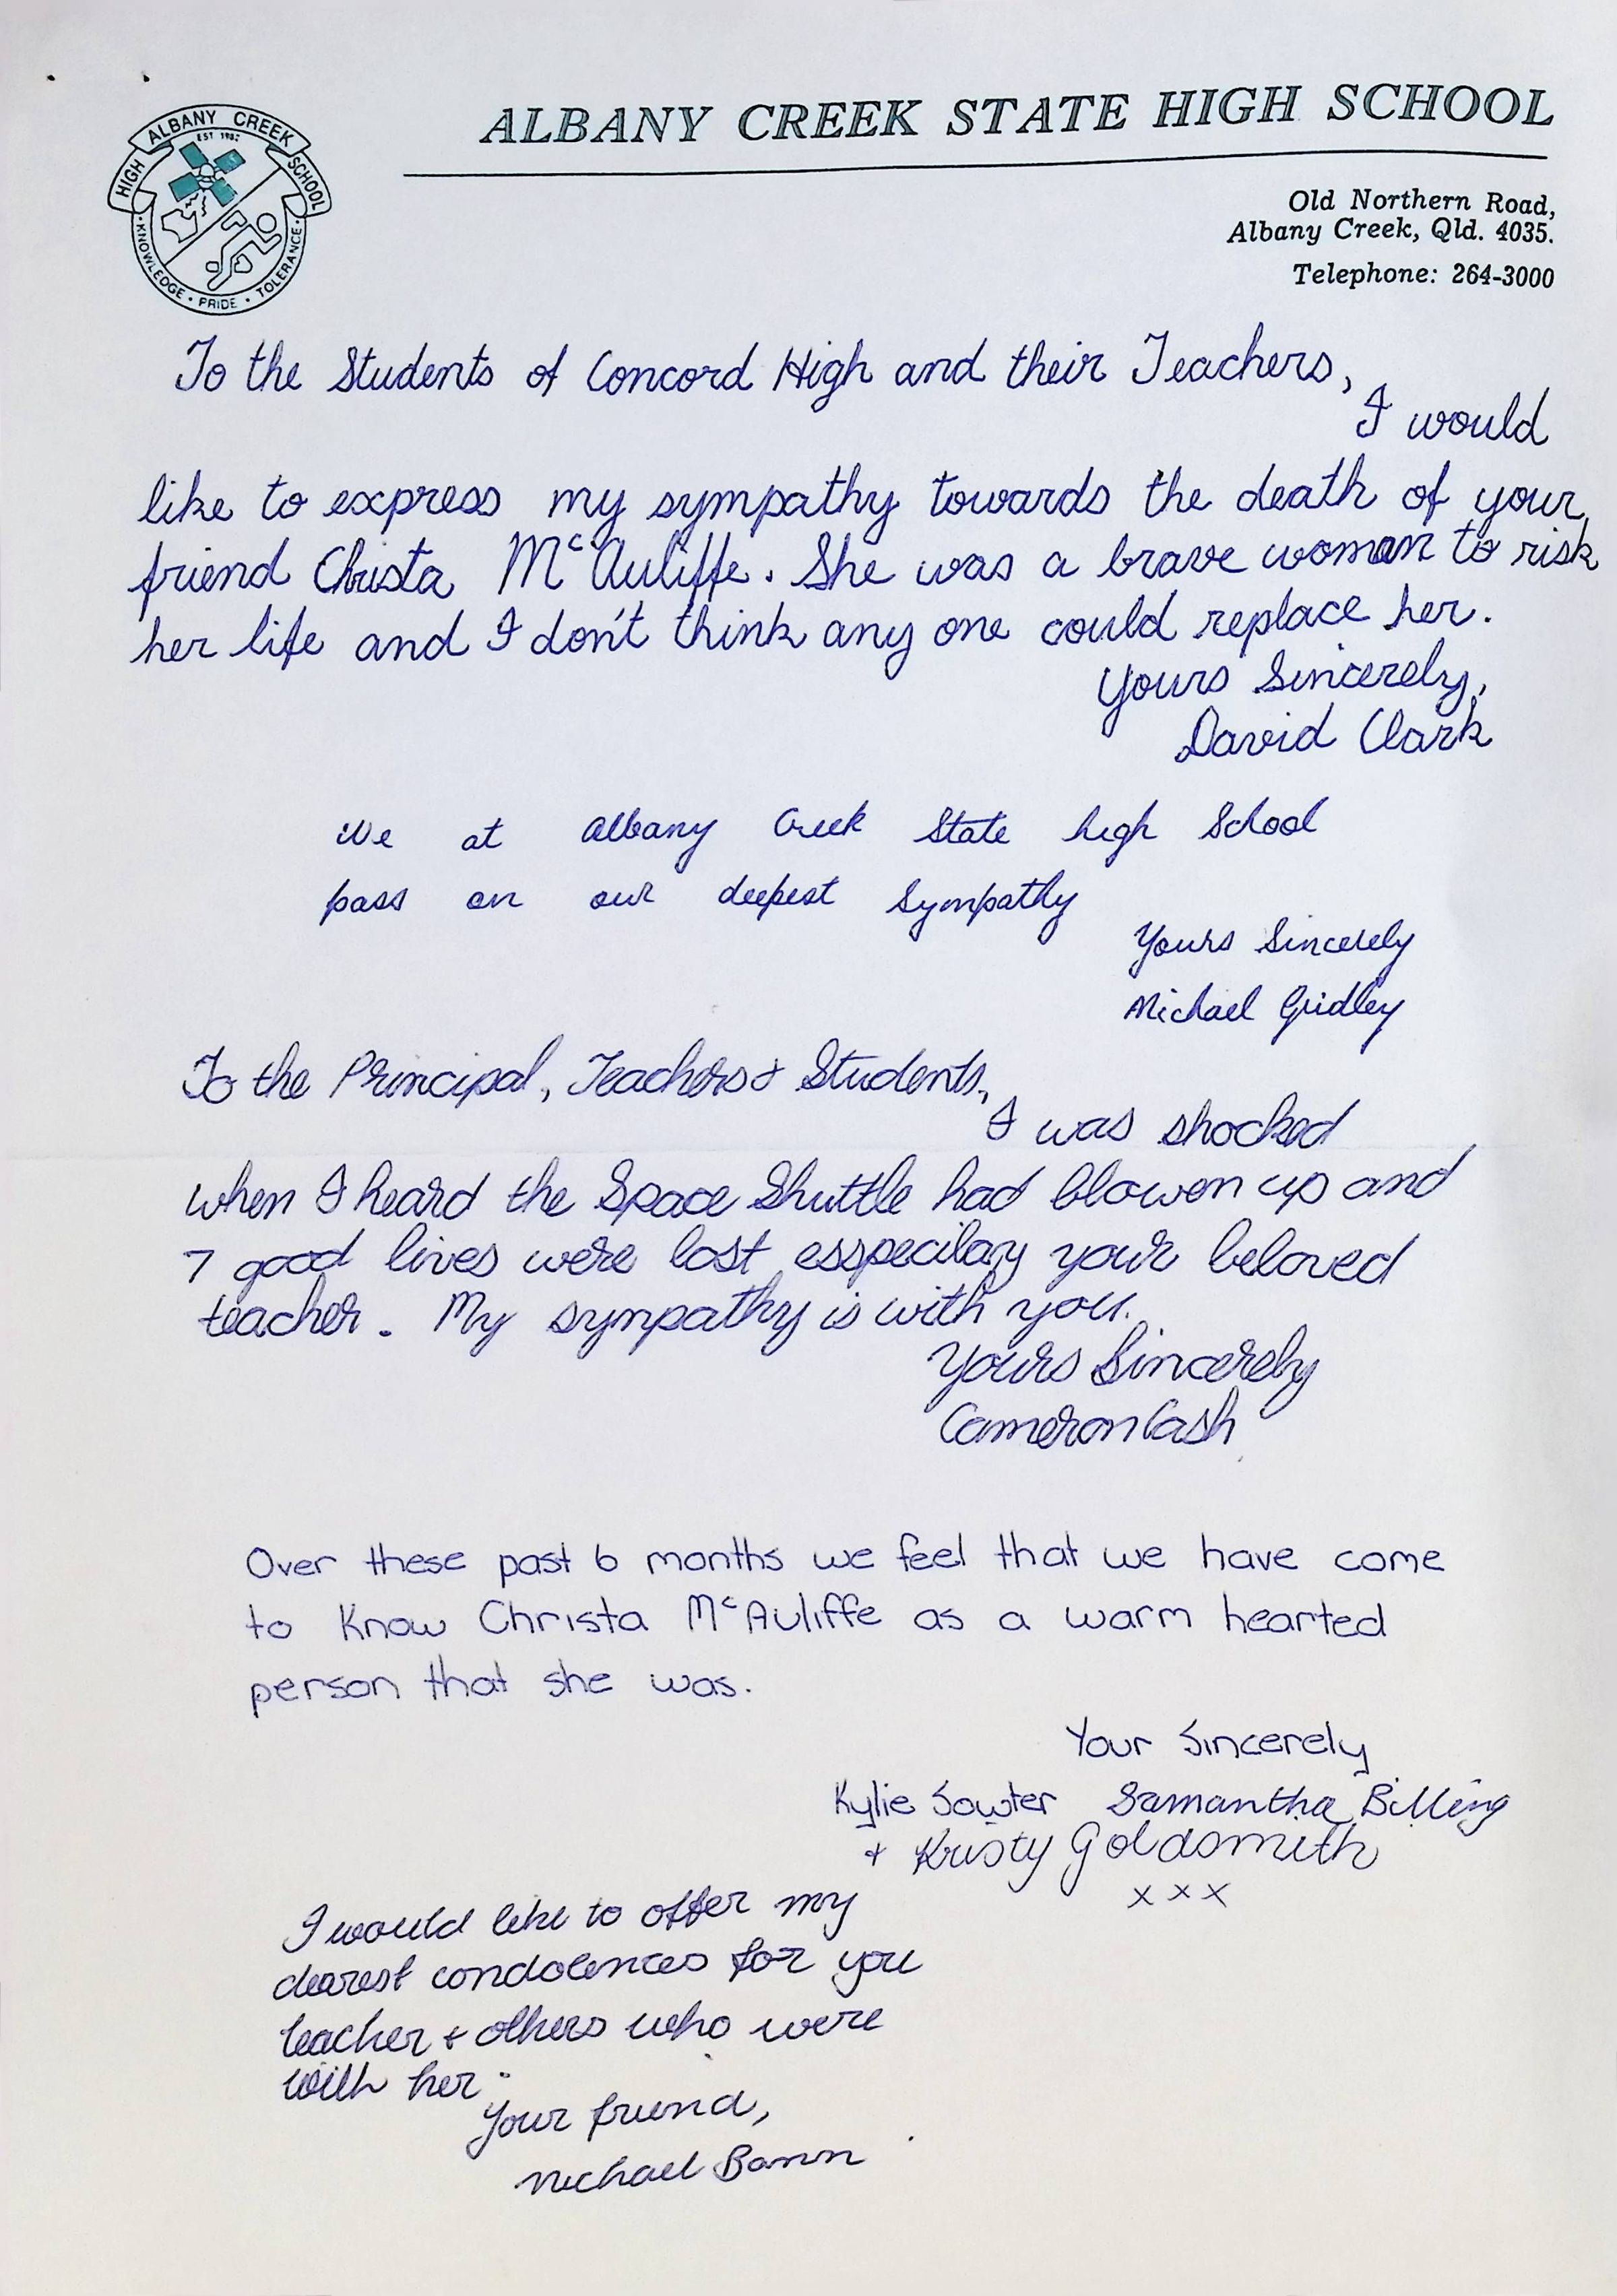 ALBANY CREEK
HIGH SCHOOL
EST 198
KNOWLEDGE · PRIDE · TOLERANCE
ALBANY CREEK STATE HIGH SCHOOL
Old Northern Road,
Albany Creek, Qld. 4035.
Telephone: 264-3000
To the Students of Concord High and their Teachers,
I would
like to express my sympathy towards the death of your
friend Christa McAuliffe. She was a brave woman to risk
her life and I don't think any one could replace her.
Yours Sincerely,
David Clark
We at Albany Creek State high School
pass on our deepest Sympathy
Yours Sincerely
Michael Gridley
To the Principal, Teachers & Students,
I was shocked
when I heard the Space Shuttle had blowen up and
7 good lives were lost esspecilay your beloved
teacher. My sympathy is with you.
Yours Sincerely
Cameron Cash
Over these past 6 months we feel that we have come
to know Christa McAuliffe as a warm hearted
person that she was.
Your Sincerely
Kylie Sowter Samantha Billing
+ Kristy Goldsmith
x x x
I would like to offer my
dearest condolences for you
teacher + others who were
with her.
Your friend,
Michael